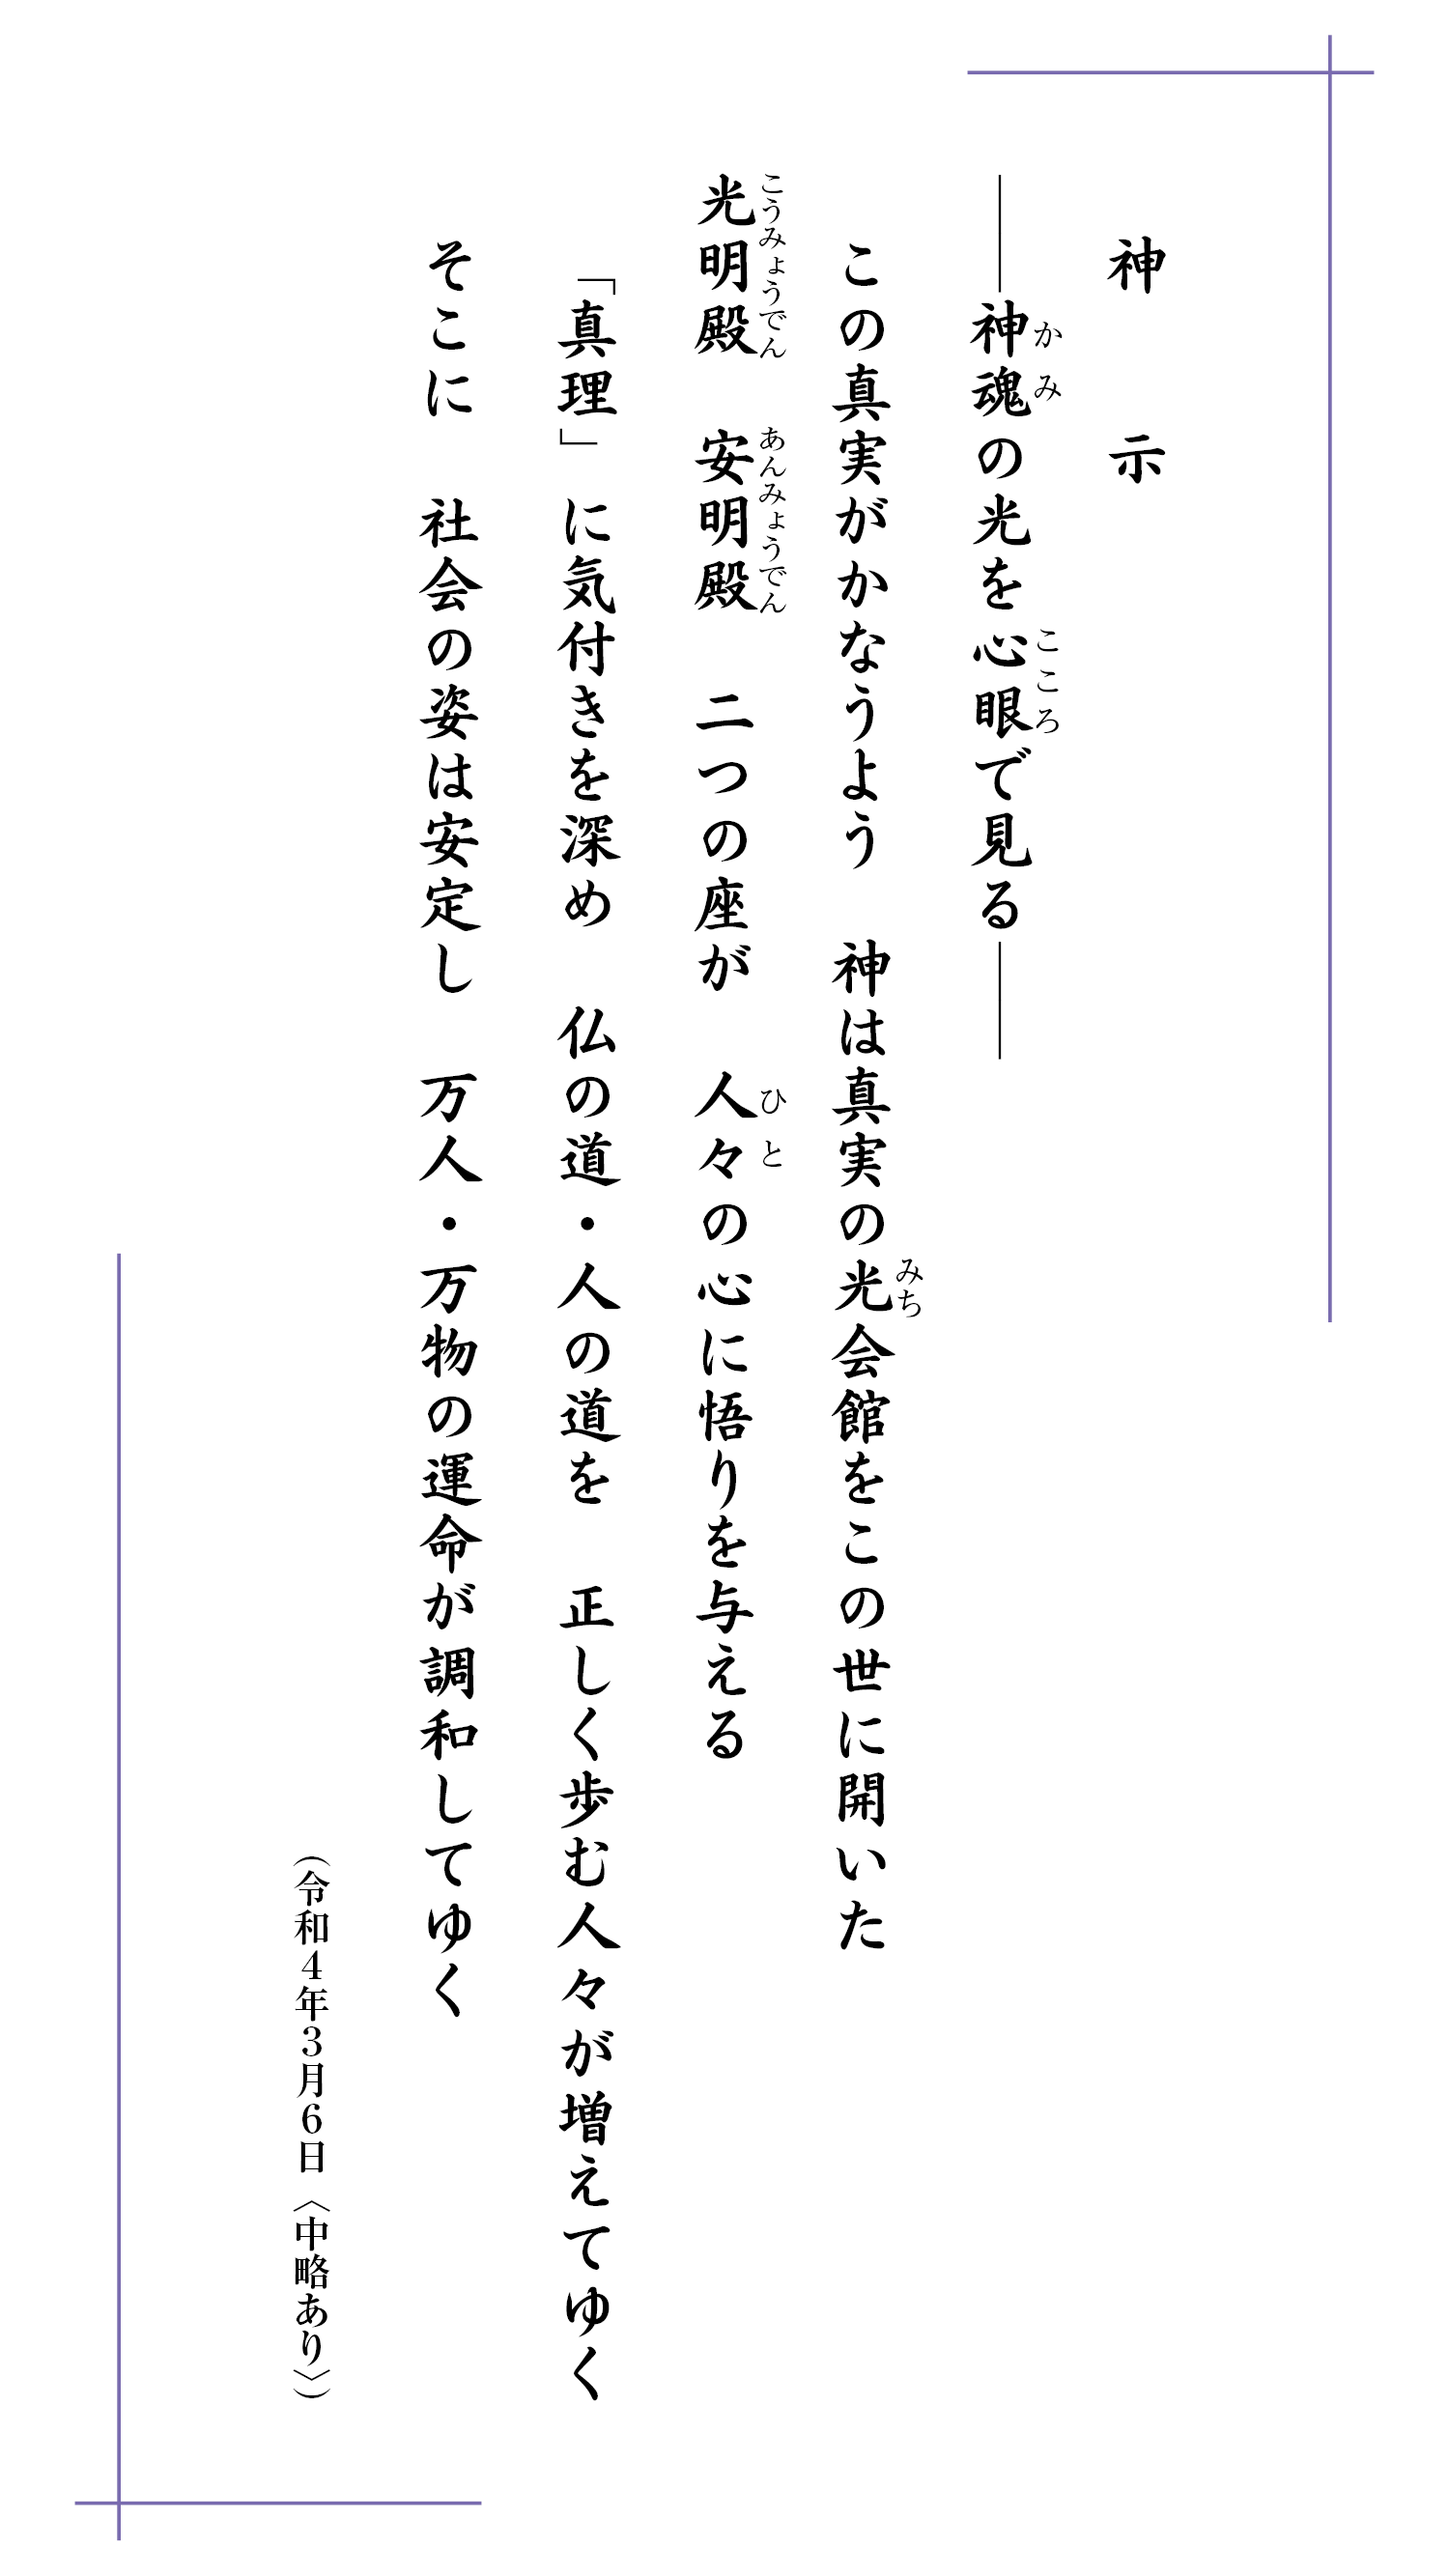 神示
――神魂の光を心眼で見る――
かみ
こころ
この真実がかなうよう　神は真実の光会館をこの世に開いた
みち
光明殿　安明殿　二つの座が　人々の心に悟りを与える
こうみょうでん
あんみょうでん
ひと
「真理」に気付きを深め　仏の道・人の道を　正しく歩む人々が増えてゆく
そこに　社会の姿は安定し　万人・万物の運命が調和してゆく
（令和４年３月６日〈中略あり〉）